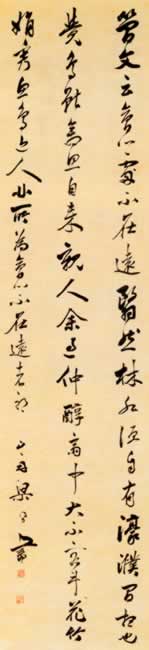 簡文云會心處不在遠翳然林水便自有濠濮間想也
覺鳥獸禽魚自來親人余過仲醇齋中大不容斗花竹
娟秀魚鳥近人此所為會心不在遠者耶
山舟梁同書